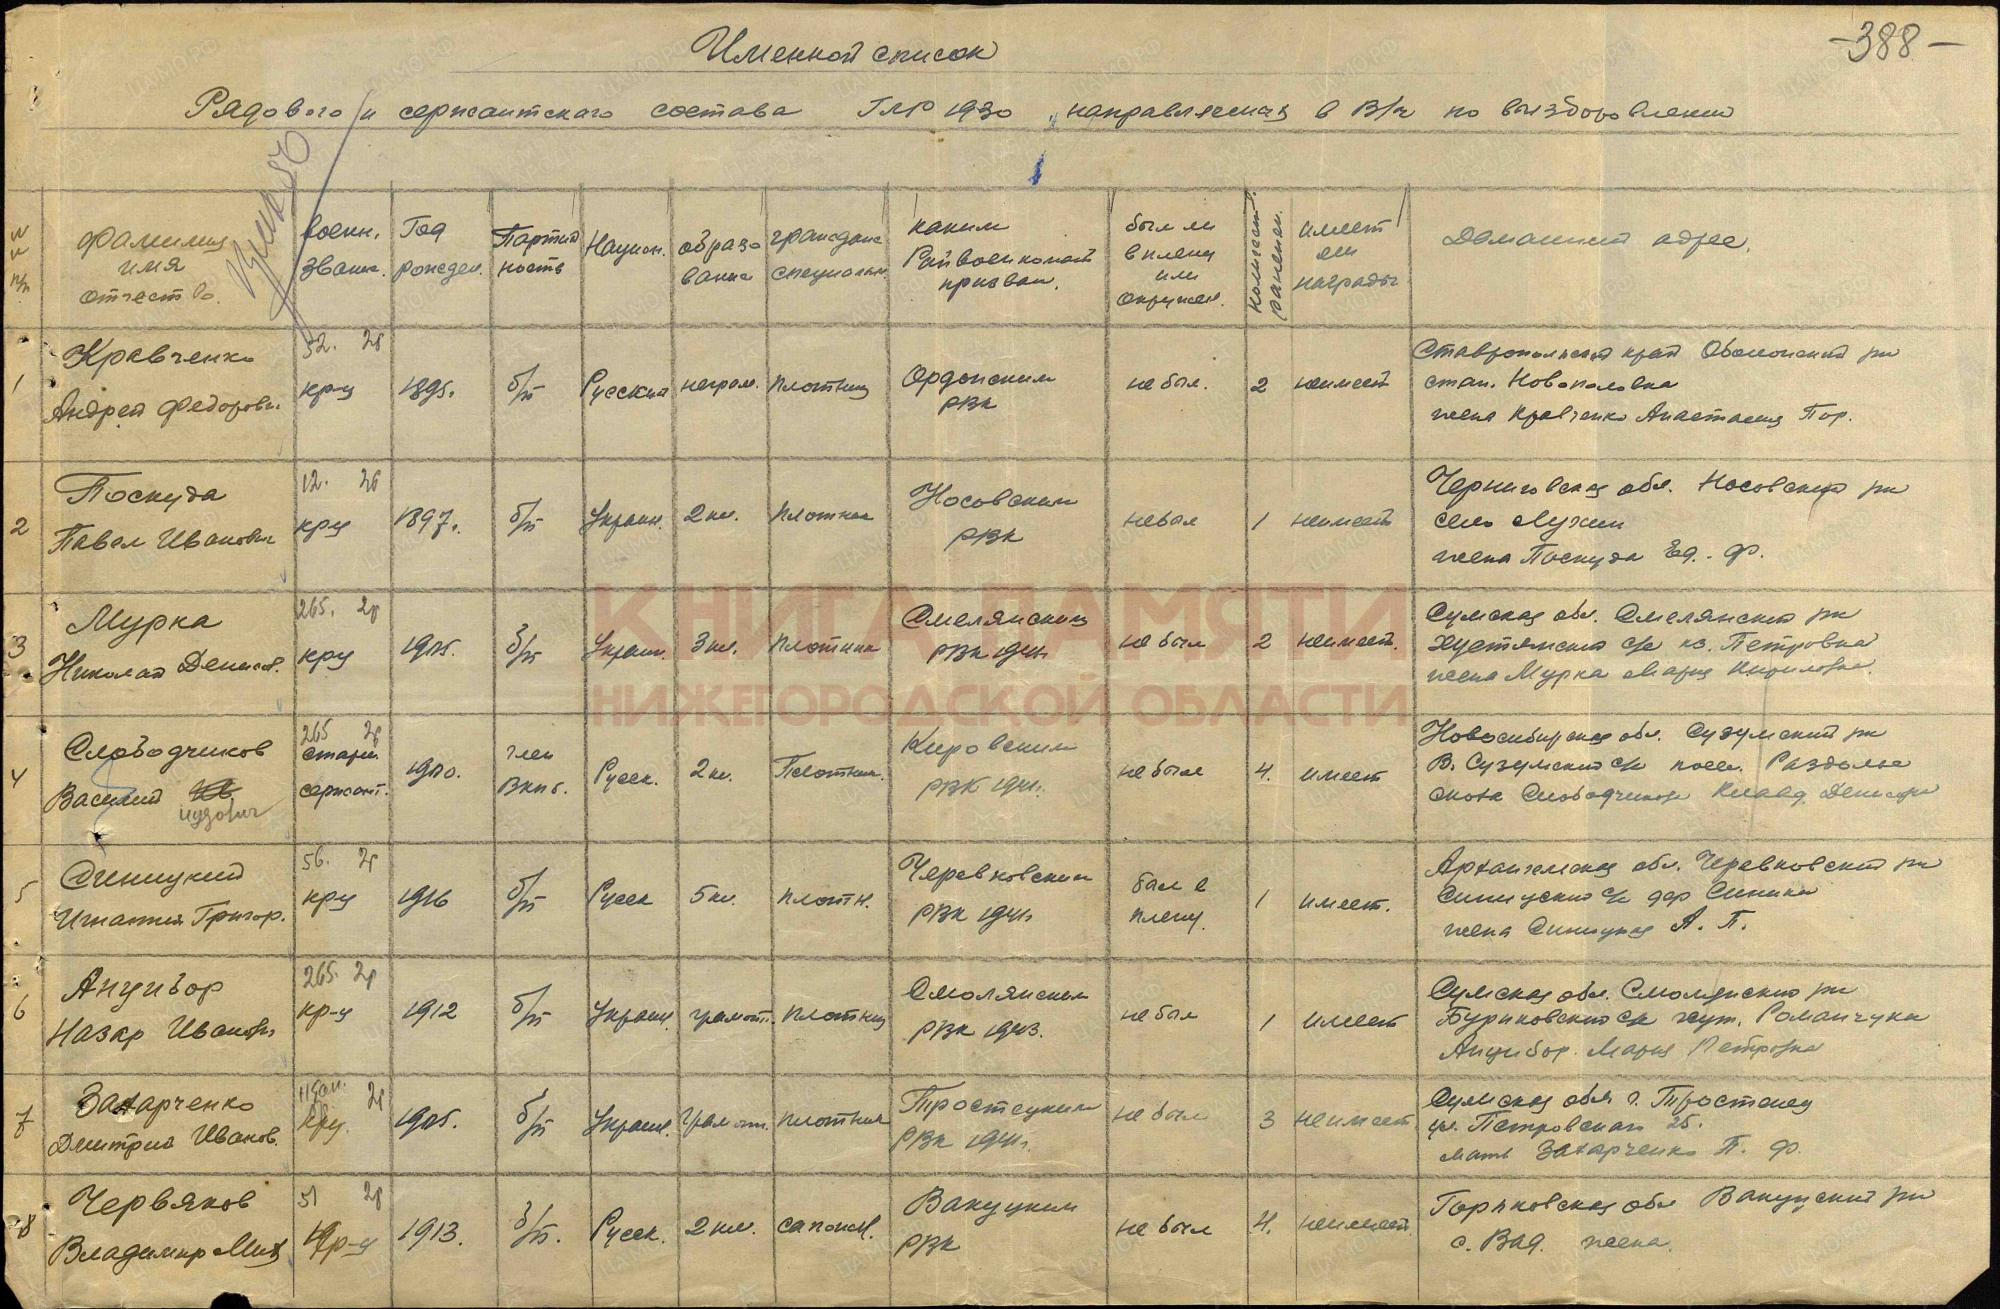 -388-
Именной список
Рядового и сержантского состава ГЛР 1930 направляемых в В/ч по выздоровлении
№№ п/п
Фамилия имя отчество
воен. звание
Год рожден.
Партийность
Национ.
образование
гражданс специальн.
каким Райвоенкомат призван.
был ли в плену или окружен.
Количест. ранений.
имеет ли награды
Домашний адрес.
1
Кравченко
Андрей Федорови.
52. 2г
кр-ц
1895.
б/п
Русский
неграм.
плотниц
Ордонским
РВК
не был.
2
неимеет
Ставропольский край рн
стан. Новополовка
жена Кравченко Анастасия
2
Поскуда
Павел Иванович
12. 2б
крц
1897.
б/п
Украин.
2 кл.
плотник
Носовским
РВК
небыл
1
неимеет
Черниговская обл. Носовский рн
село
жена Поскуда Ев. Ф.
3
Мурка
Николай Денисов.
265. 2г
крц
1905.
б/п
Украин.
3 кл.
плотник
Смелянским
РВК 1941г.
не был
2
неимеет.
Сумская обл. Смелянский рн
Хустянский с/с к. Петровка
жена Мурка Мария Кириловна.
4
Слободчиков
Василий
265 2г
старш.
сержант.
1910.
член
вкпб.
Русск.
2 кл.
Плотник.
Кировским
РВК 1941г.
не был
4.
имеет
Новосибирская обл. Сузунский рн
В. Сузунский с/с посел. Раздолье
Слободчикова Клавд. Денисовн
5
Синицкий
Игнатий Григор.
56. 2г
крц
1916
б/п
Русск
5 кл.
плотн.
Черевковским
РВК 1941г.
был в
плену.
1
имеет.
Архангельская обл. Черевковский рн
Синицкий с/с дер Синики
жена Синицкая А. П.
6
Анцибор
Назар Иванович
265. 2г
кр-ц
1912
б/п
Украин.
грамотн.
плотниц
Смолянским
РВК 1943.
не был
1
имеет
Сумская обл. Смолянский рн
Буриковский с/с хут. Романчуки
Анцибор. Мария Петровна
7
Захарченко
Дмитрий Иванов.
2г
крц.
1905.
б/п
Украин.
грамотн.
плотник
Тростецким
РВК 1941г.
не был
3
неимеет.
Сумская обл г. Тростенец
ул. Петровского 25.
мать Захарченко П. Ф.
8
Червяков
Владимир Мих
51 2г
кр-ц
1913.
б/п.
Русск.
2 кл.
сапожн.
Вакуцким
РВК
не был
4.
неимеет.
Горьковская обл Вакуцкий рн
с. Вад. жена.
КНИГА ПАМЯТИ
НИЖЕГОРОДСКОЙ ОБЛАСТИ